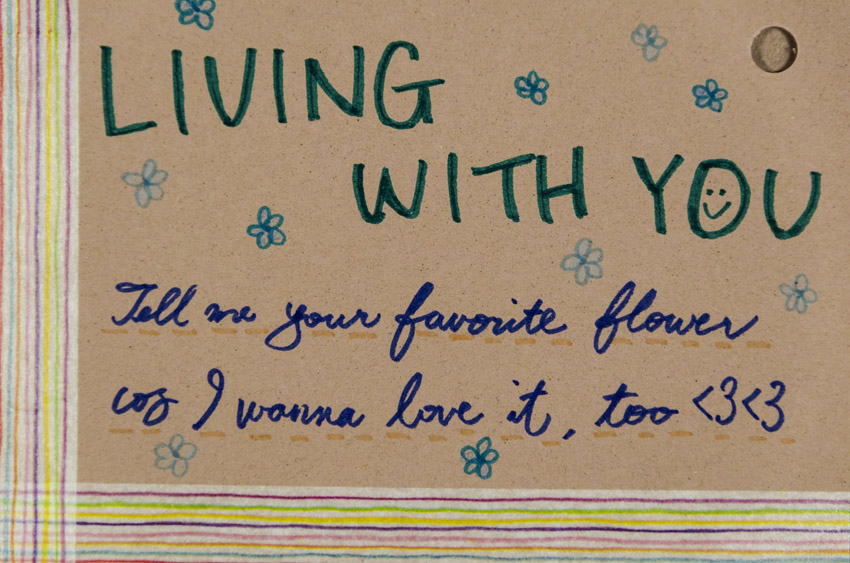 LIVING
WITH YOU
Tell me your favorite flower
coz I wanna love it, too <3<3